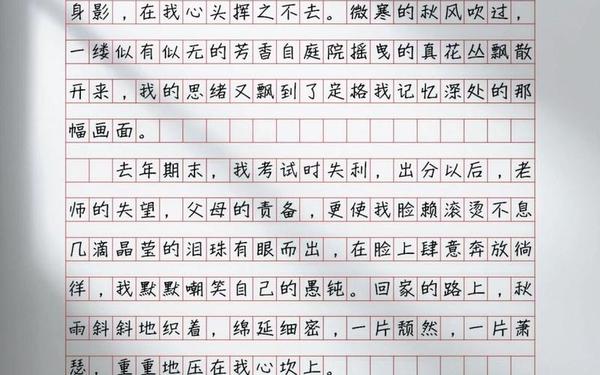 身影，在我心头挥之不去。微寒的秋风吹过，
一缕似有似无的芳香自庭院摇曳的真花丛飘散
开来，我的思绪又飘到了定格我记忆深处的那
幅画面。
去年期末，我考试时失利，出分以后，老
师的失望，父母的责备，更使我脸赖滚烫不息
几滴晶莹的泪珠有眼而出，在脸上肆意奔放徜
徉，我默默嘲笑自己的愚钝。回家的路上，秋
雨斜斜地织着，绵延细密，一片颓然，一片萧
瑟，重重地压在我心坎上。